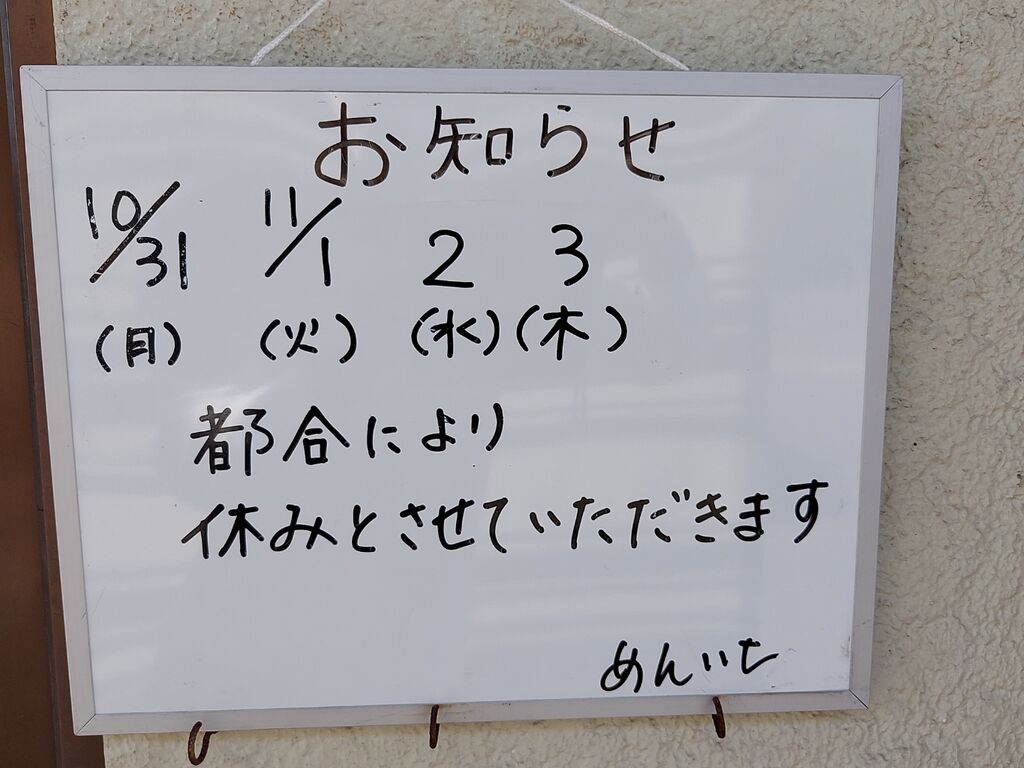 お知らせ
10/31 11/1 2 3
(月) (火) (水) (木)
都合により
休みとさせていただきます
めんいち